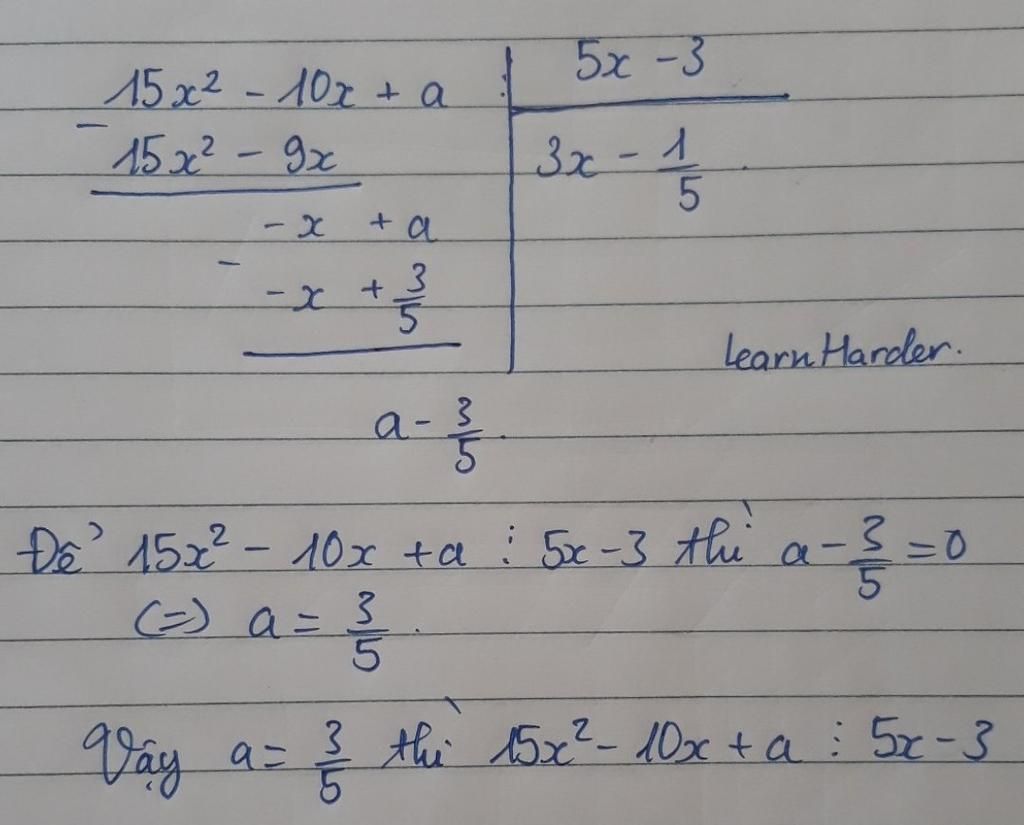 15x² - 10x + a : 5x - 3
- 15x² - 9x 3x - 1/5
-x + a
- -x + 3/5
LearnHarder.
a - 3/5.
Để 15x² - 10x + a ⋮ 5x - 3 thì a - 3/5 = 0
(=) a = 3/5.
Vậy a = 3/5 thì 15x² - 10x + a ⋮ 5x - 3